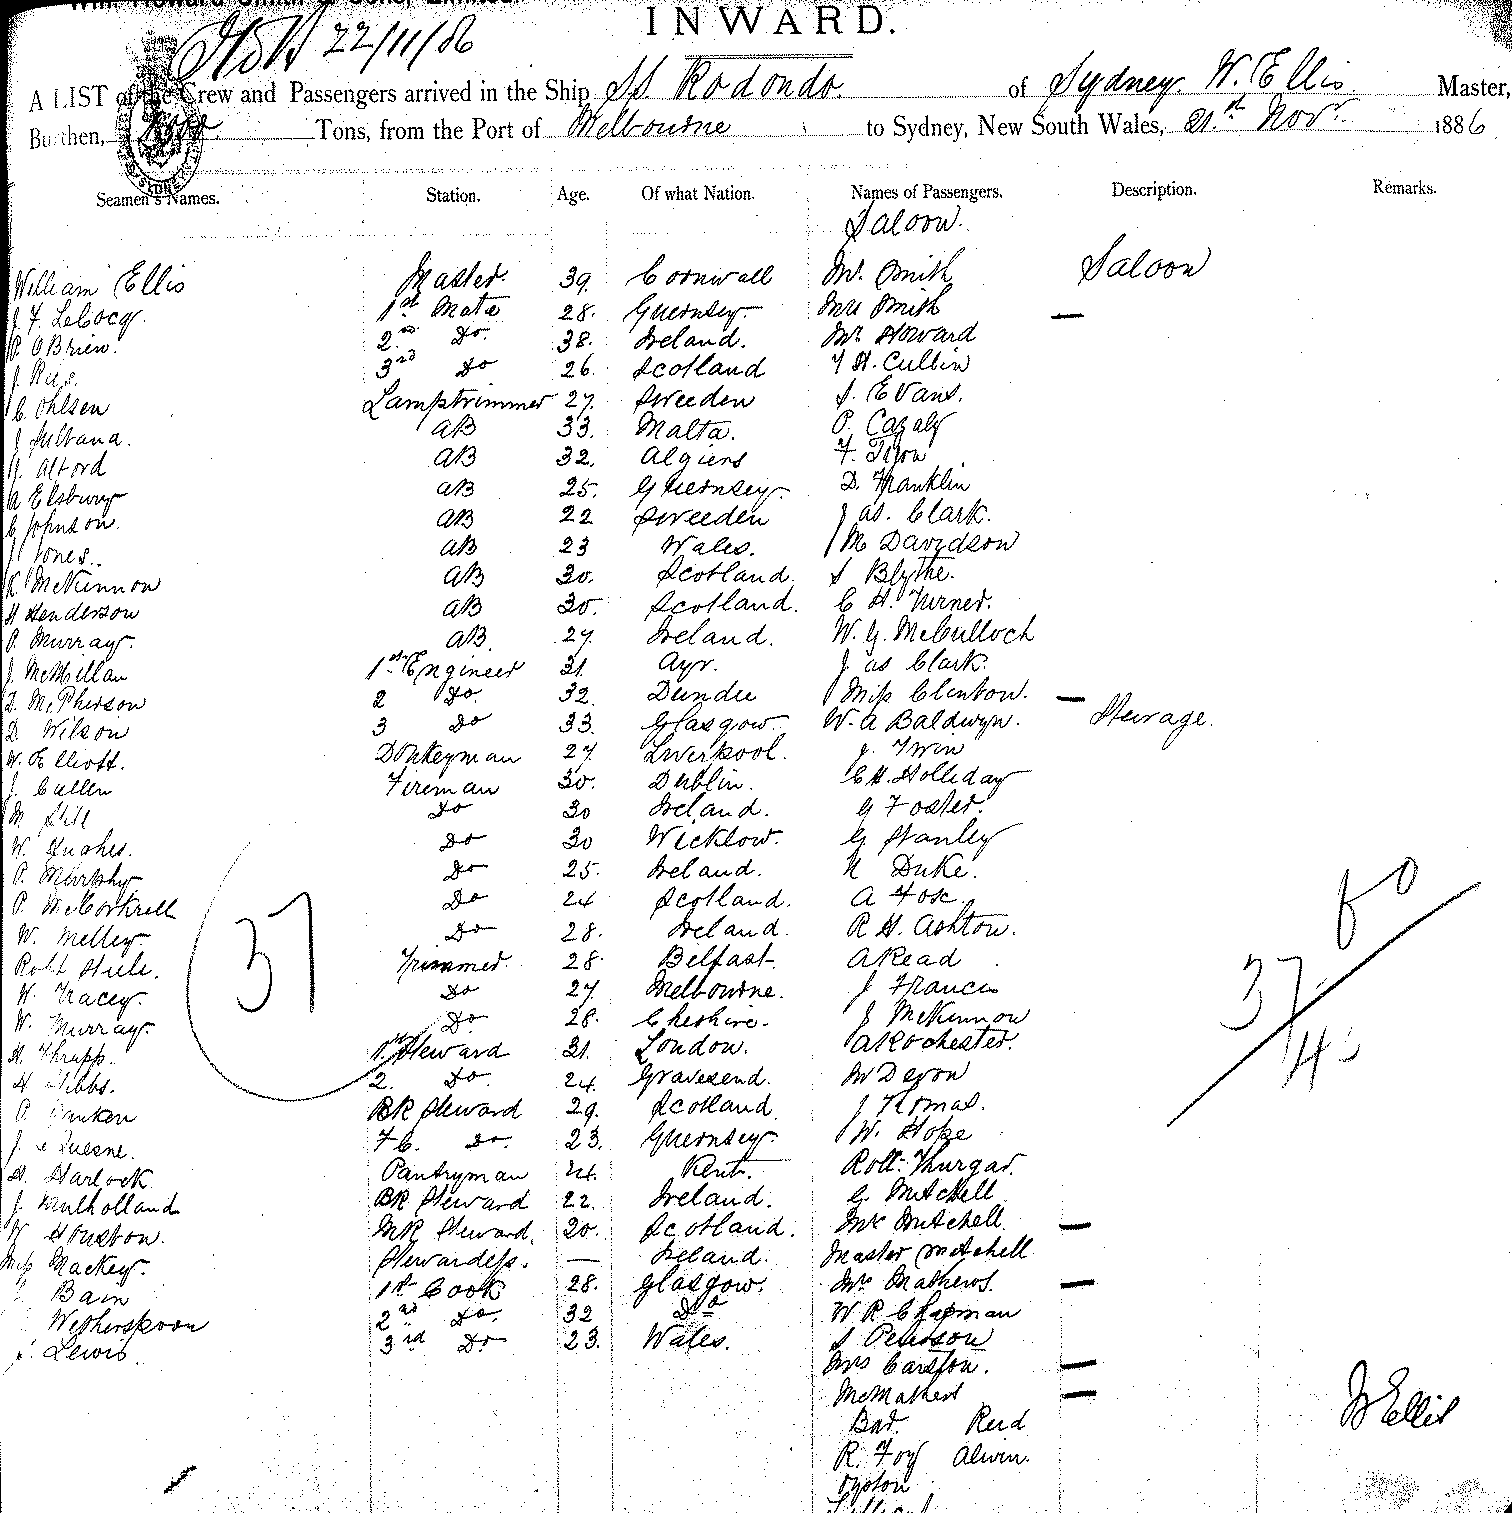 INWARD.
22/11/86
A LIST of the Crew and Passengers arrived in the Ship SS Rodondo of Sydney W. Ellis Master,
Burthen, Tons, from the Port of Melbourne to Sydney, New South Wales, 21st Novr. 1886
Seamen's Names. Station. Age. Of what Nation. Names of Passengers. Description. Remarks.
Saloon.
William Ellis Master 39 Cornwall Mr. Smith Saloon
J. F. LeCocq. 1st Mate 28. Guernsey. Mrs Smith —
P. OBrien. 2nd Do. 38. Ireland. Mr Howard
J. 3rd Do 26. Scotland F H. Cullin
C. Ohlsen Lamptrimmer 27. Sweeden S. Evans.
J AB 33. Malta. P. Cazaly
J. Alford AB 32. Algiers F.
A Elsbury AB 25. Guernsey. D. Franklin
C Johnson. AB 22 Sweeden Jas. Clark.
J Jones. AB 23 Wales. M Davidson
K. McKinnon AB 30. Scotland. S Blythe.
H Henderson AB 30. Scotland. C H. Turner.
P. Murray. AB. 27. Ireland. W. G. McCulloch
J. McMillan 1st Engineer 31. Ayr. Jas Clark.
D. McPherson 2 Do. 32. Dundee Miss Clinton. —
D Wilson 3 Do 33. Glasgow. W. A Baldwyn. Steerage.
W. Elliott. Donkeyman 27. Liverpool. J. Irwin
J. Cullen Fireman 30. Dublin. C H. Holliday
M Do 30 Ireland. G Foster.
W. Hughes. Do 30 Wicklow. G Stanley
P. Murphy Do 25. Ireland. N Duke.
P. McCorkrell Do 24 Scotland. A Fox.
W. Melley. Do 28. Ireland. R H. Ashton.
Robt Steele. Trimmer. 28. Belfast. A Read
W. Tracey. Do 27 Melbourne. J Francis
W. Murray. Do 28. Cheshire. J McKinnon
H. Thrapp. 1st Steward 31. London. A Rochester.
H Gibbs. 2. Do. 24. Gravesend. M Devon
P. BR Steward 29. Scotland J Thomas.
J. Le Quesne. F C. Do. 23. Guernsey. W. Hope
H. Harlock. Pantryman 24. Kent. Robt. Thurgar.
J. Mulholland BR Steward 22. Ireland. G. Mitchell
W Houston. MR Steward. 20. Scotland. Mrs Mitchell. —
Miss Mackey. Stewardess. — Ireland. Master Mitchell
Bain 1st Cook 28. Glasgow. Mrs Mathews. —
Wetherspoon 2nd Do. 32 Do W R Chapman
Lewis 3rd Do 23. Wales. S Peterson
Mrs Carsfon. —
McMathers —
Reid
R. Foy Alwin.
Oyston
37
60
37
W Ellis